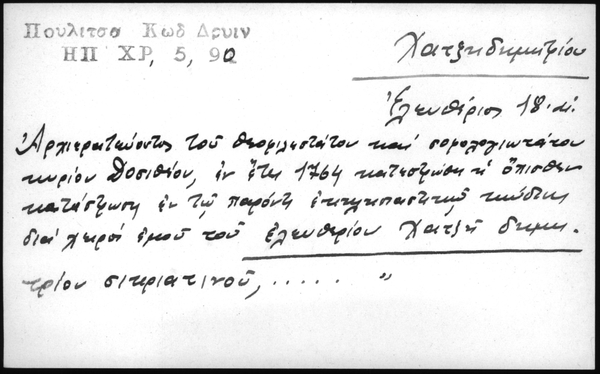 Πουλιτσα Κωδ Δρυιν
ΗΠ ΧΡ, 5, 90
Χατζηδημητρίου
Ἐλευθέριος 18. αἰ.
Ἀρχιερατεύοντος τοῦ θεοφιλεστάτου καί σοφολογιωτάτου
κυρίου Δοσιθέου, ἐν ἔτει 1764 κατεστρώθη ἡ ὄπισθεν
κατάστρωση ἐν τῷ παρόντι κώδικι
διά χειρός ἐμοῦ τοῦ ἐλευθερίου Χατζῆ δημη-
τρίου σιτριατινοῦ, ..... "